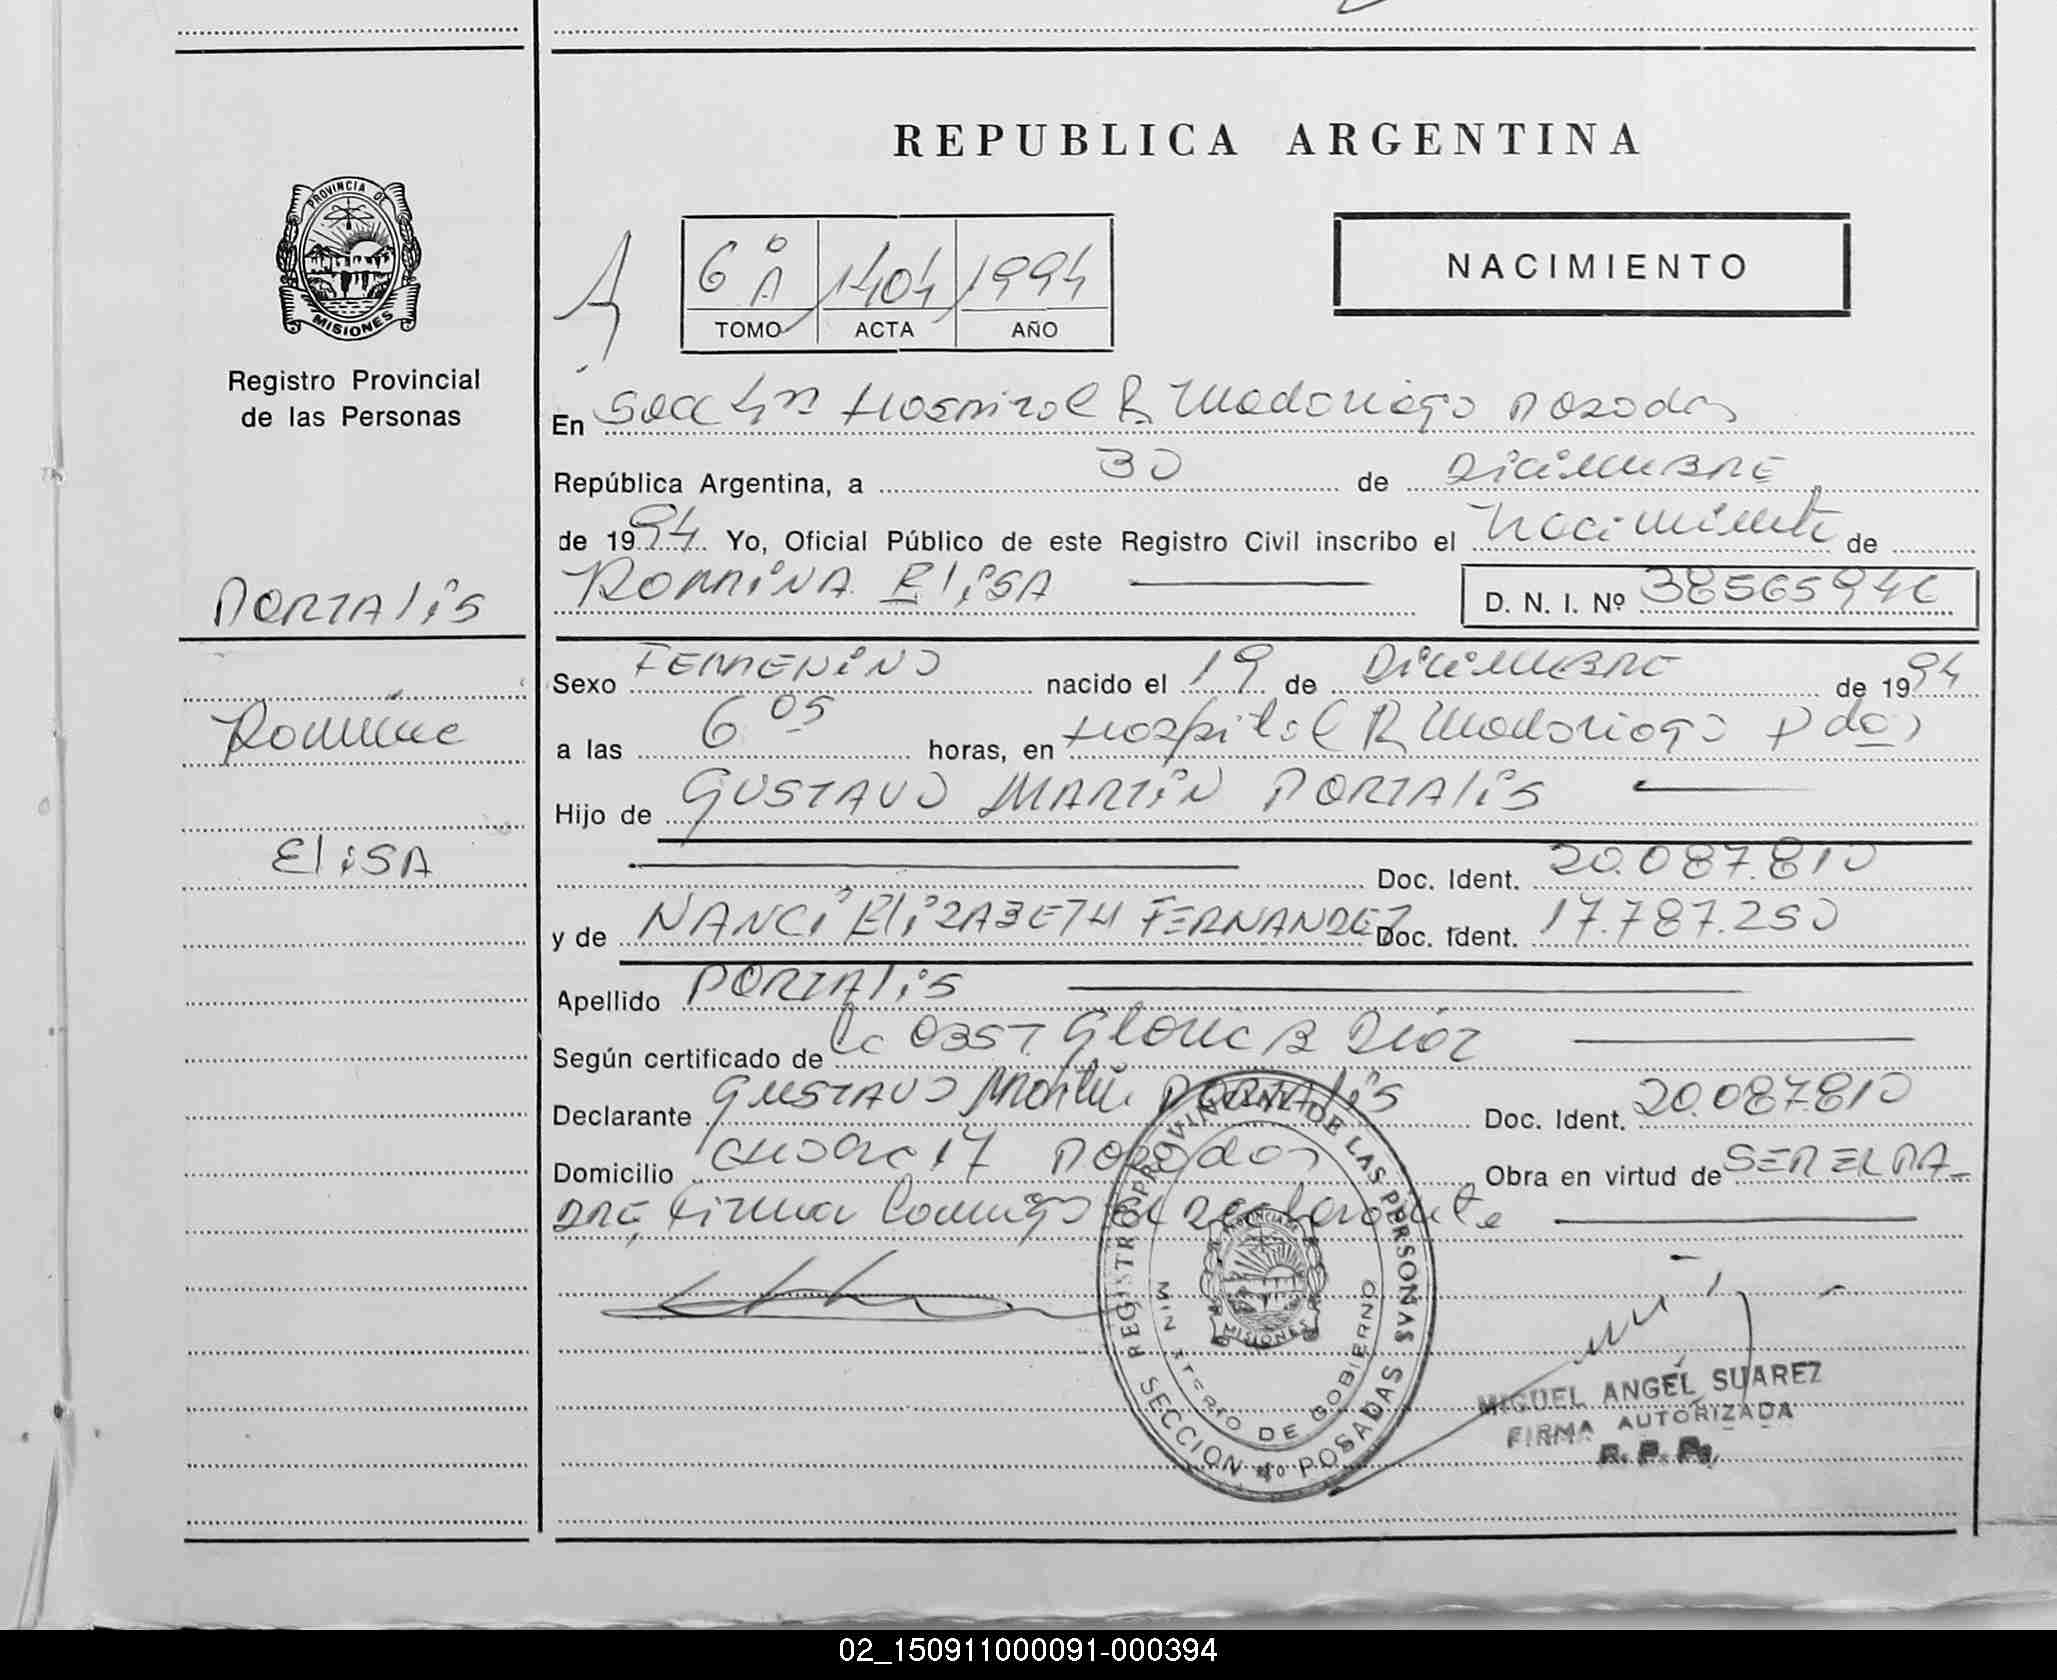 REPUBLICA ARGENTINA
PROVINCIA DE
MISIONES
Registro Provincial
de las Personas
6º A 1404 1994
TOMO ACTA AÑO
NACIMIENTO
En Secc Hospital R Madariaga Posadas
República Argentina, a 30 de DiciEMBRE
de 1994 Yo, Oficial Público de este Registro Civil inscribo el Nacimiento de
ROMINA ElisA
D. N. I. Nº 38565946
PORTAliS
Romina
EliSA
Sexo FEMENiNO nacido el 19 de DiciEMBRE de 1994
a las 6 05 horas, en Hospital R Madariaga Pdas
Hijo de GUSTAVO MARTiN PORTAliS
Doc. Ident. 20.087.810
y de NANCi EliZABETH FERNANDEZ Doc. Ident. 17.787.250
Apellido PORTAliS
Según certificado de la OBST Gloria B Diaz
Declarante GUSTAVO Martin PORTAliS Doc. Ident. 20.087.810
Domicilio Chacra 17 Posadas Obra en virtud de SER EL PA-
DRE, firma conmigo el declarante
REGISTRO PROVINCIAL DE LAS PERSONAS
MINISTERIO DE GOBIERNO
PROVINCIA DE
MISIONES
SECCION POSADAS
MIGUEL ANGEL SUAREZ
FIRMA AUTORIZADA
R. P. P.
02_150911000091-000394